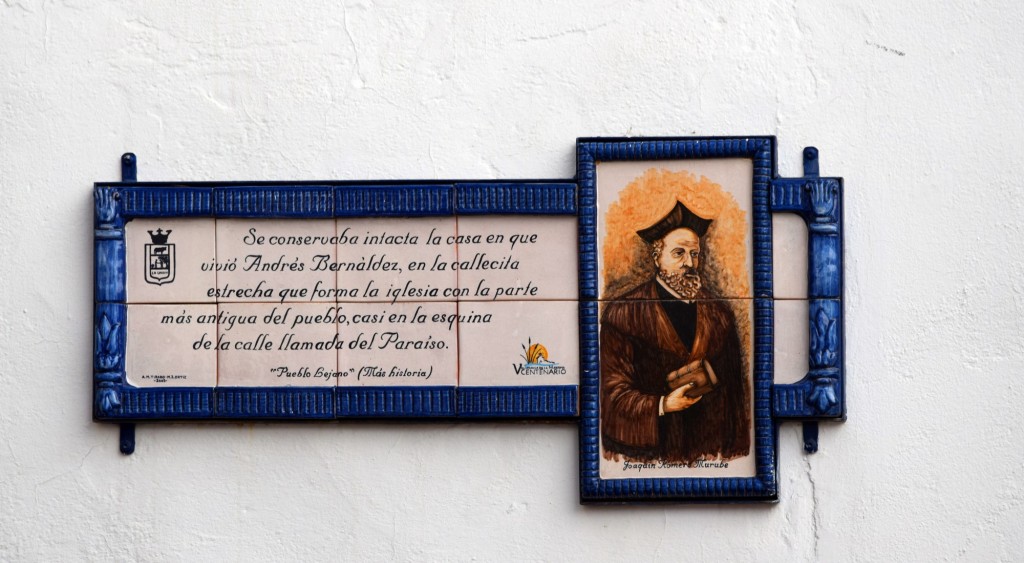 Se conservaba intacta la casa en que
vivió Andrés Bernàldez, en la callecita
estrecha que forma la iglesia con la parte
más antigua del pueblo, casi en la esquina
de la calle llamada del Paraíso.
"Pueblo Lejano" (Más historia)
V CENTENARIO
Joaquín Romero Murube